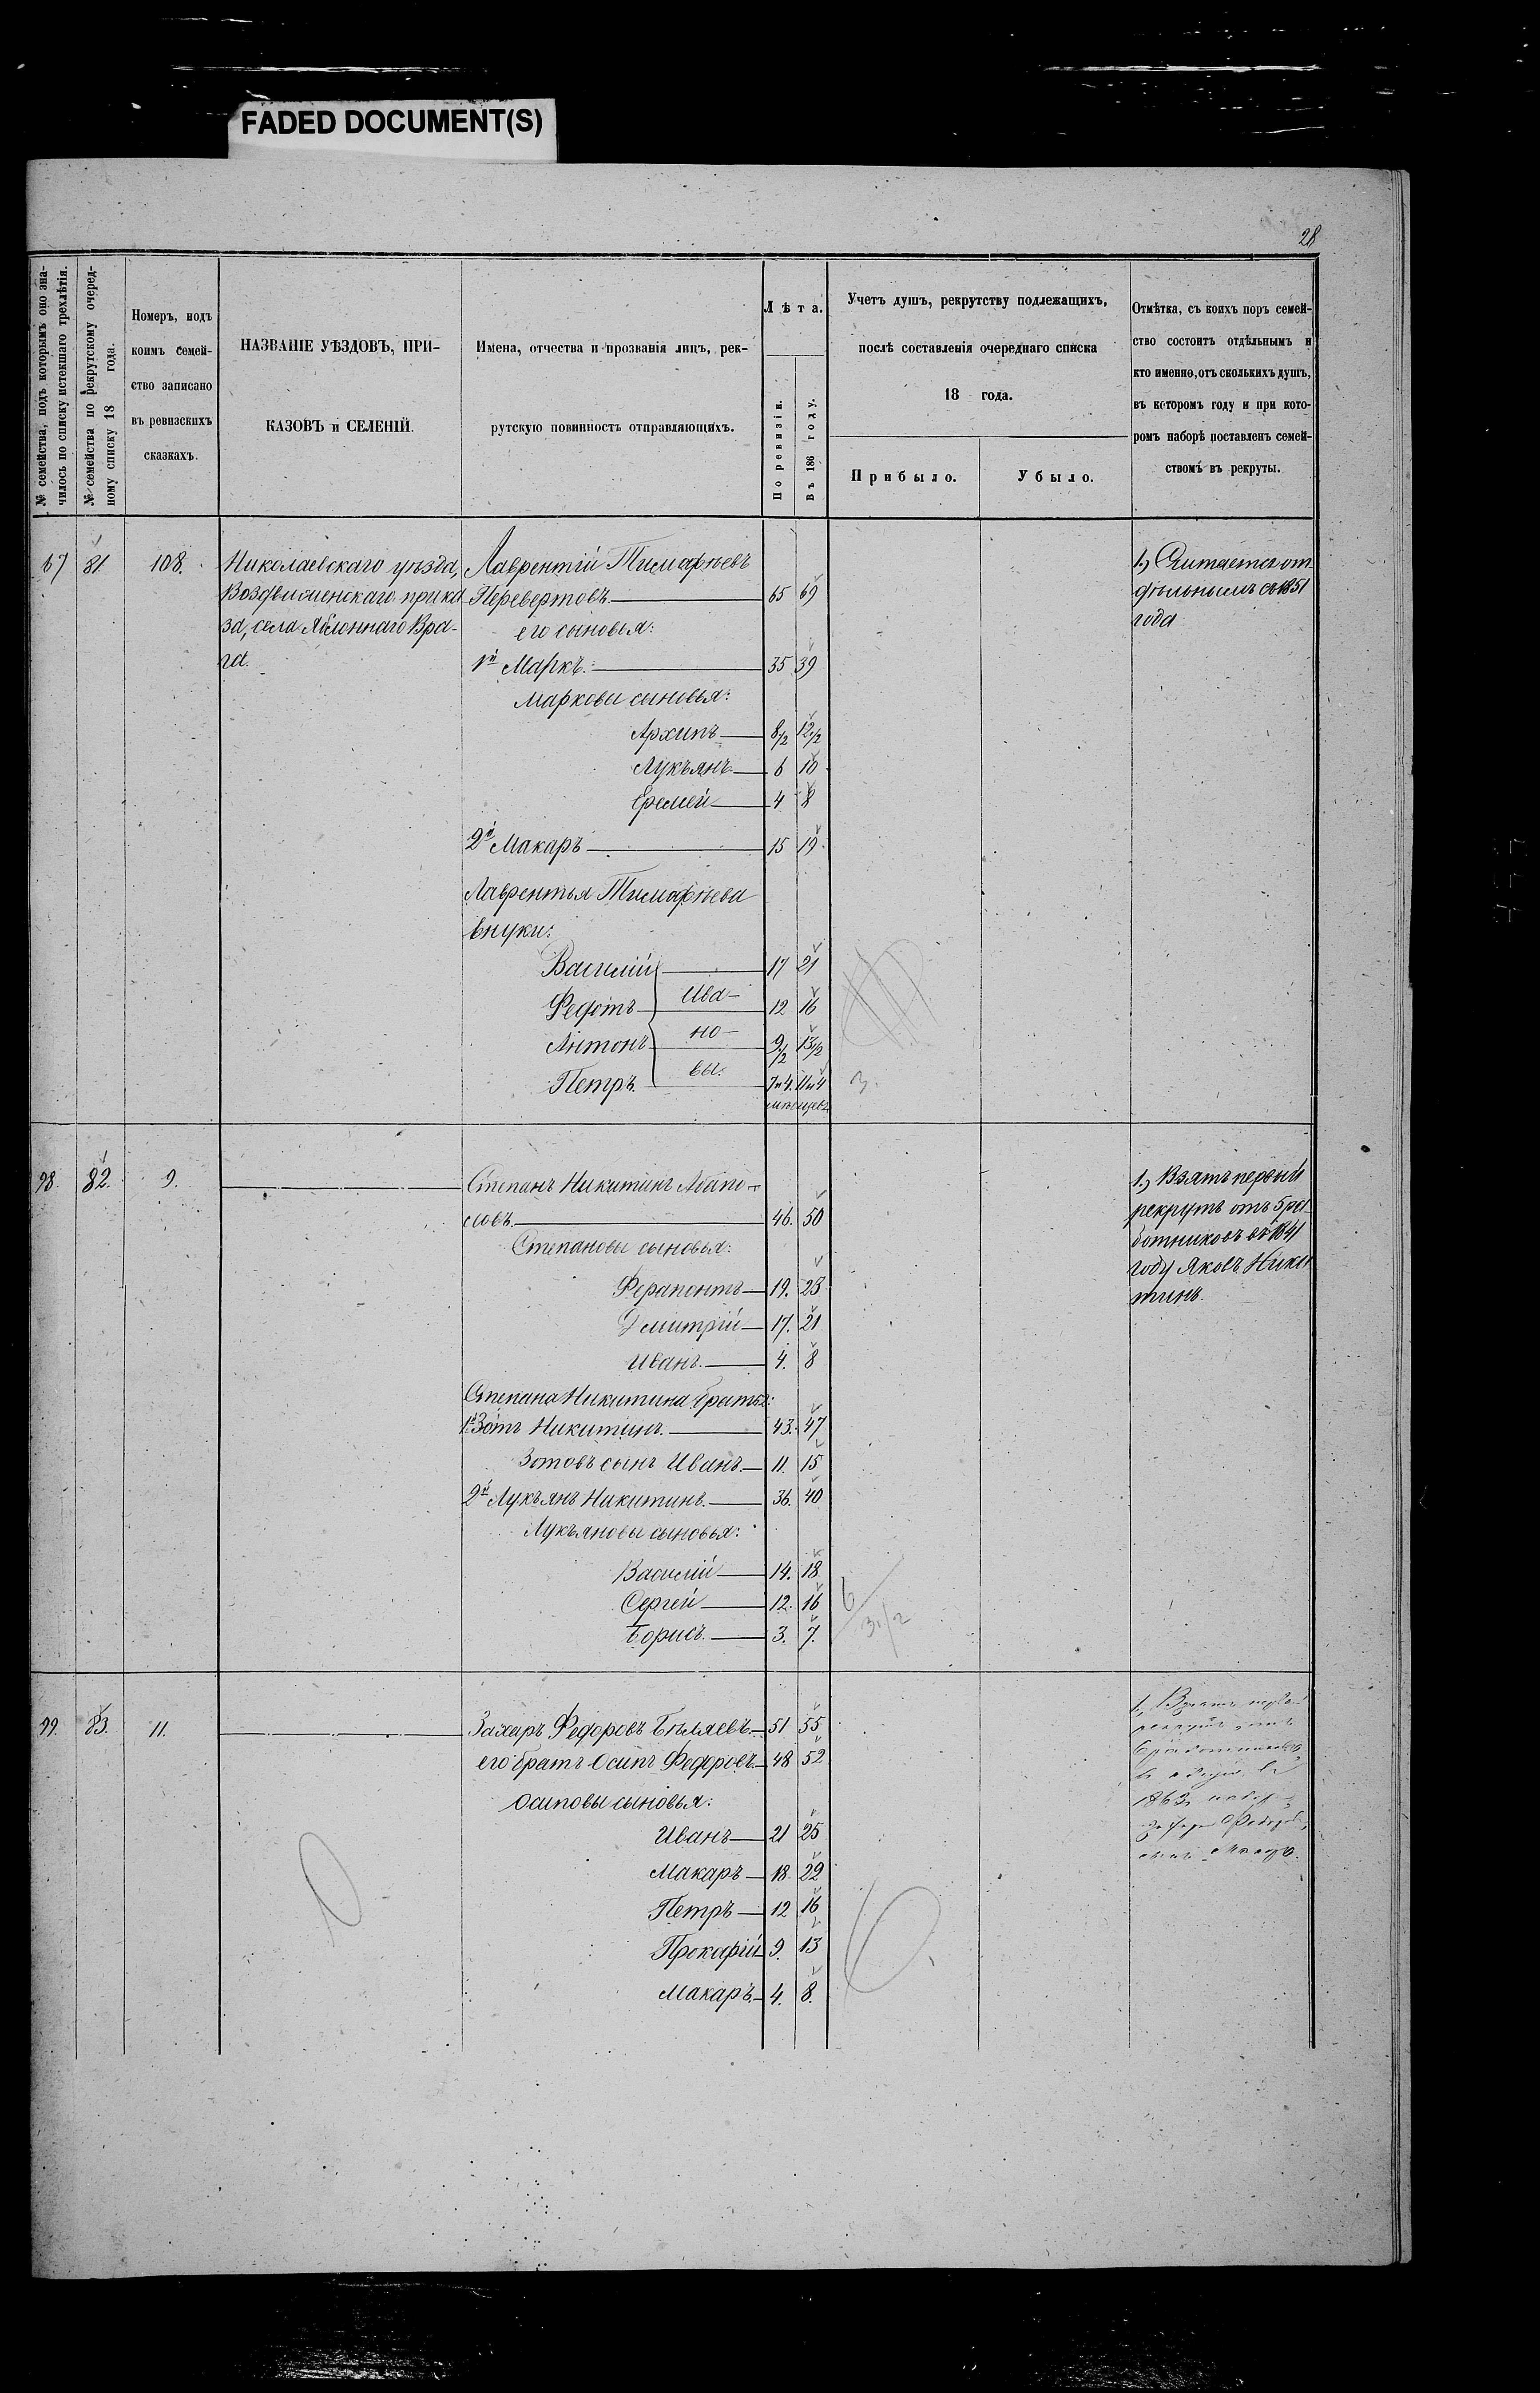 FADED DOCUMENT(S)
28
№ семейства, подъ которымъ оно зна-
чилось по списку истекшаго трехлѣтія.
№ семейства по рекрутскому очеред-
ному списку 18 года.
Номеръ, подъ
коимъ семей-
ство записано
въ ревизскихъ
сказкахъ.
НАЗВАНІЕ УѢЗДОВЪ, ПРИ-
КАЗОВЪ и СЕЛЕНІЙ.
Имена, отчества и прозванія лицъ, рек-
рутскую повинность отправляющихъ.
Лѣта.
По ревизіи.
Въ 186 году.
Учетъ душъ, рекрутству подлежащихъ,
послѣ составленія очереднаго списка
18 года.
Прибыло.
Убыло.
Отмѣтка, съ коихъ поръ семей-
ство состоитъ отдѣльнымъ и
кто именно, отъ сколькихъ душъ,
въ которомъ году и при кото-
ромъ наборѣ поставленъ семей-
ствомъ въ рекруты.
67 81 108. Николаевскаго уѣзда, Лаврентій Тимофѣевъ 1) Считается от
Воздвиженскаго прика Перевертовъ 65 69 дѣльнымъ съ 1851
за, села Яблоннаго Вра- его сыновья: года
га. 1й Маркъ. 35 39
Марковы сыновья:
Архипъ 8 1/2 12 1/2
Лукъянъ 6 10
Еремей 4 8
2й Макаръ 15 19
Лаврентья Тимофѣева
внуки:
Василій 17 21
Федотъ Ива- 12 16
Антонъ но- 9 1/2 13 1/2
Петръ. вы. 7 и 4. 11 и 4 3.
мѣсяцевъ
98. 82. 9. Степанъ Никитинъ 1) Взятъ первый
словъ. 46. 50 рекрутъ отъ 5 ра
Степановы сыновья: ботниковъ въ 1841
Ферапонтъ 19. 23 году Яковъ Ники
Дмитрій 17. 21 тинъ.
Иванъ. 4. 8
Степана Никитина братья:
1й Зотъ Никитинъ. 43. 47
Зотовъ сынъ Иванъ. 11. 15
2й Лукъянъ Никитинъ. 36. 40
Лукъяновы сыновья:
Василій 14. 18
Сергей 12. 16 6
Борисъ. 3. 7. 3 1/2
99. 83. 11. Захаръ Федоровъ Бѣляевъ 51 55 1, Взятъ первый
его братъ Осипъ Федоровъ. 48 52 рекрутъ отъ
Осиповы сыновья: 6 работниковъ
Иванъ 21 25 1863
Макаръ 18. 22
Петръ 12 16
Прокафій 9. 13 6.
Макаръ. 4. 8.